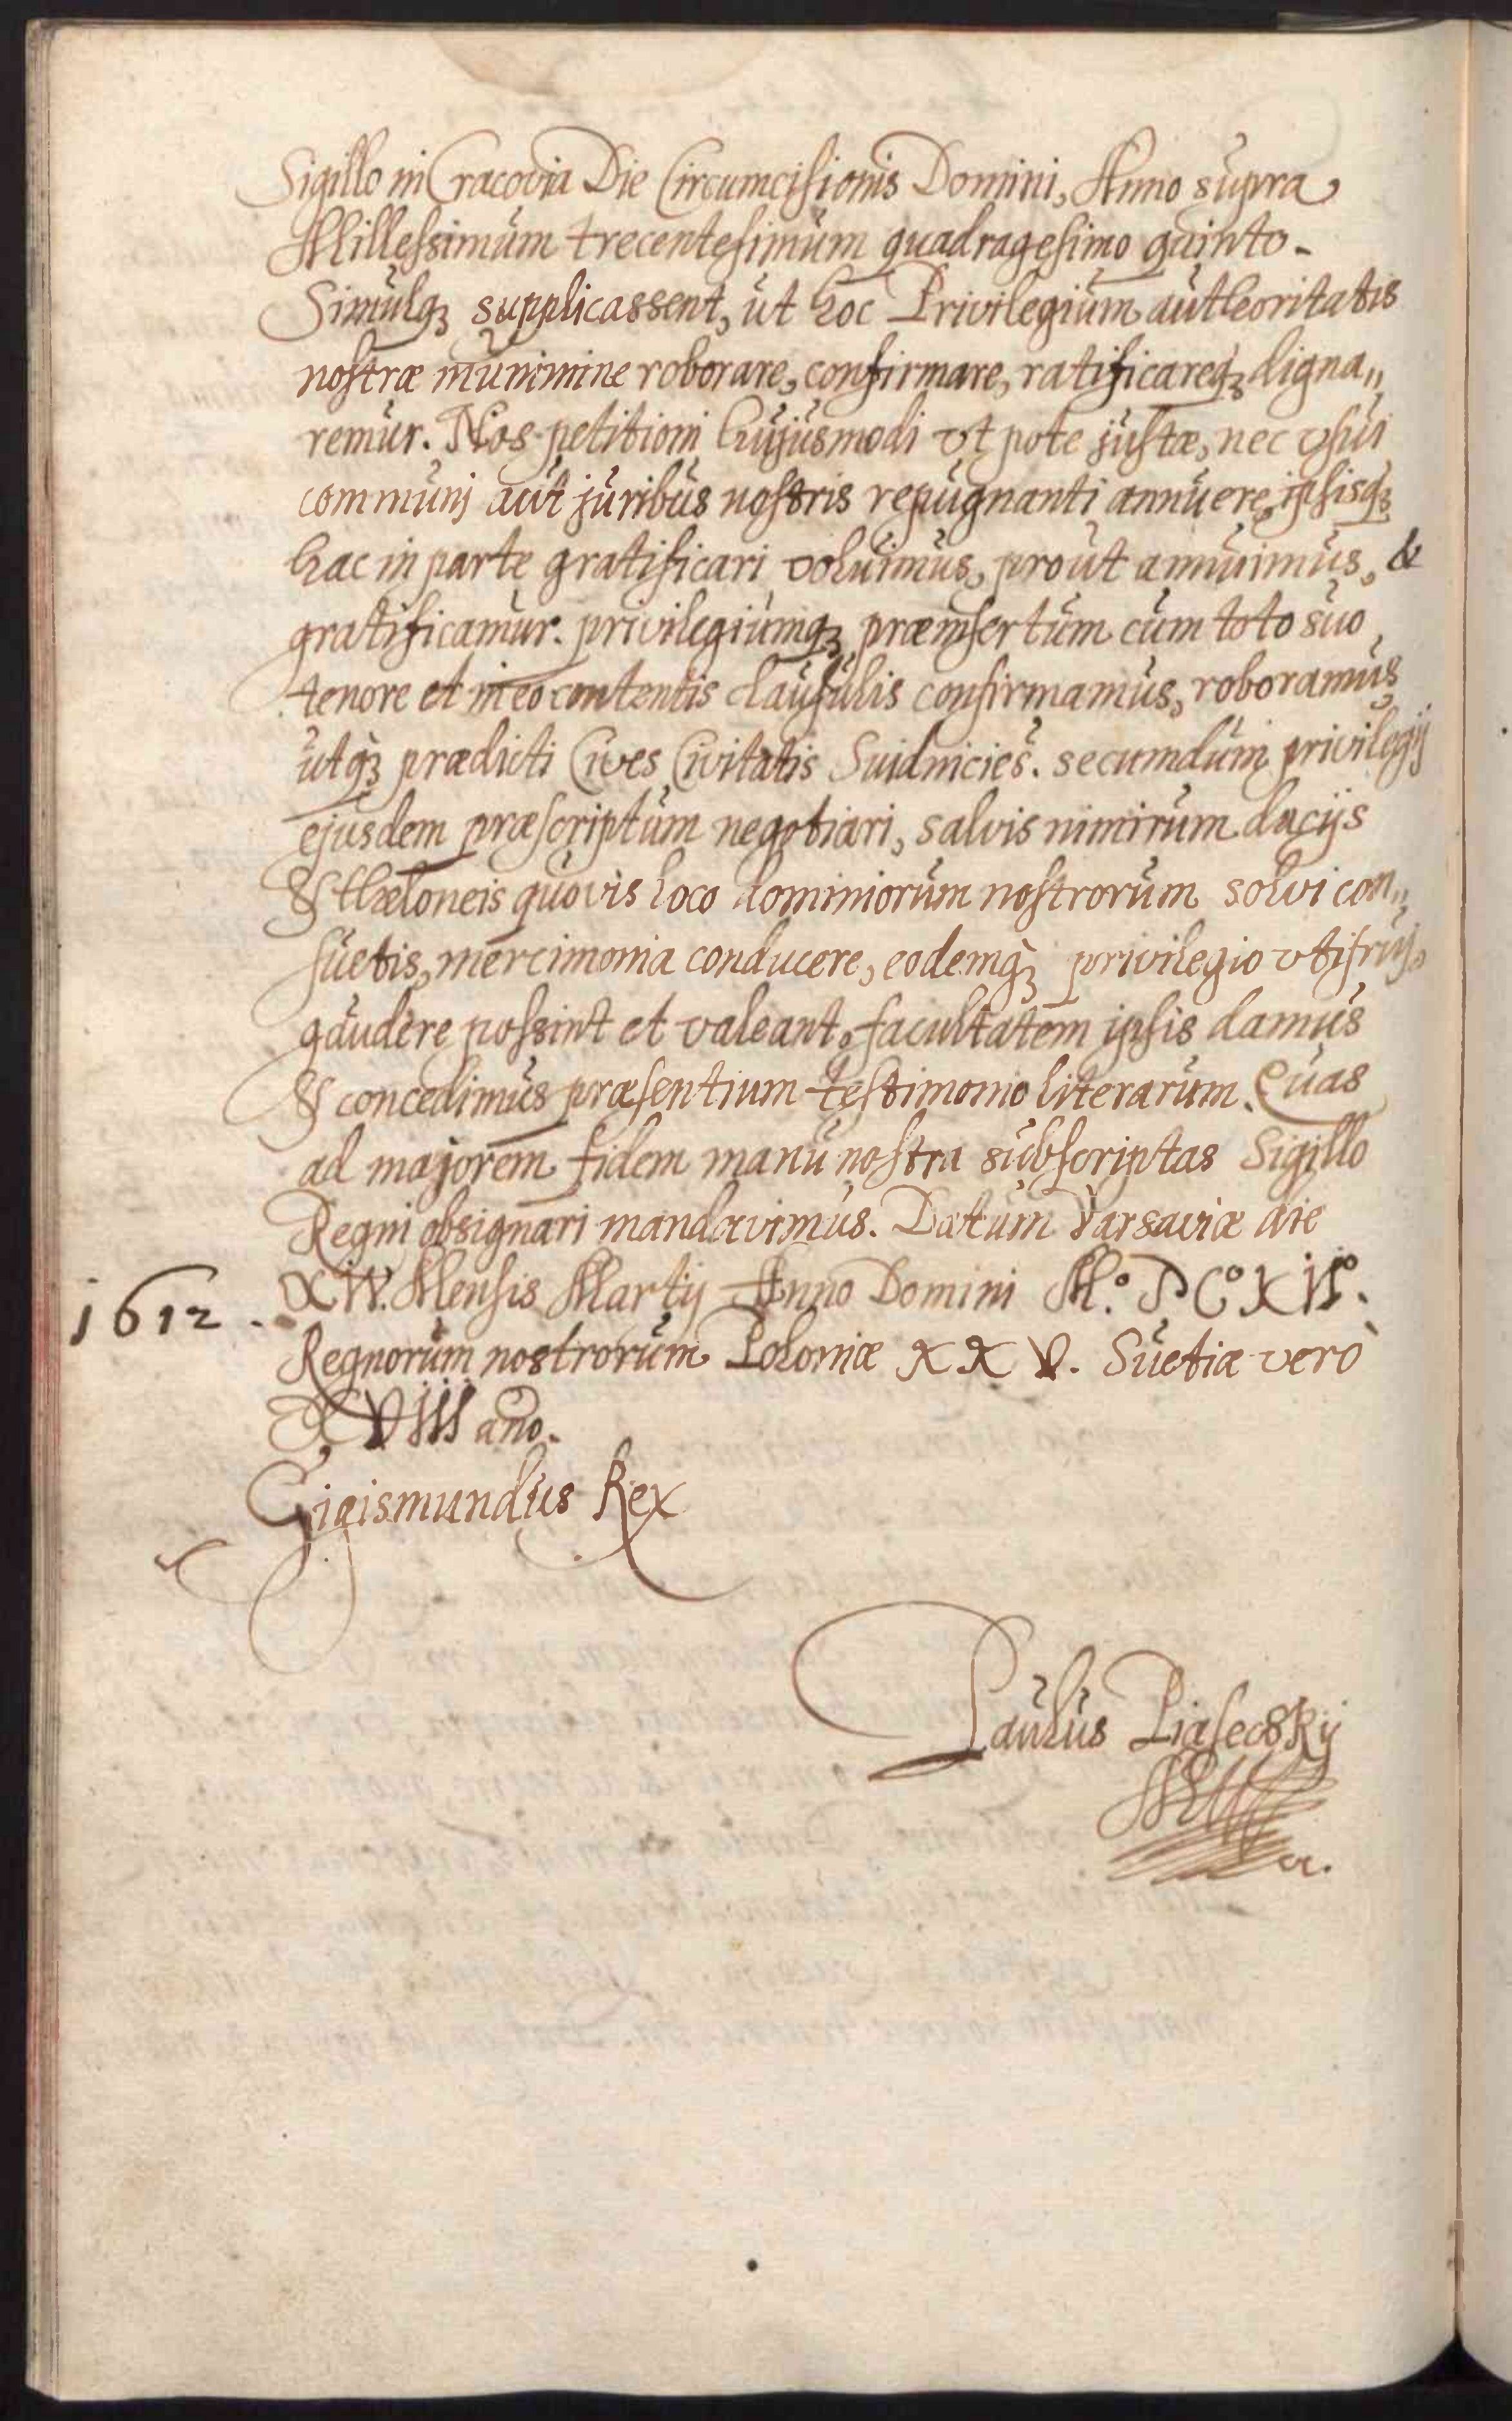 Sigillo in Cracovia Die Circumcisionis Domini, Anno supra
Millessimum trecentesimum quadragesimo quinto.
Simulq₃ supplicassent, ut hoc Privilegium autheoritatis
nostræ munimine roborare, confirmare, ratificareq₃ digna„
remur. Nos petitioni hujusmodi vt pote justæ, nec vsui
communj aut juribus nostris repugnanti annuere, ipsisq₃
hac in parte gratificari voluimus, prout annuimus, &
gratificamur. privilegiumq₃ præinsertum cum toto suo
tenore et in eo contentis clausulis confirmamus, roboramus
utq₃ prædicti Cives Civitatis Suidnicieš. secumdum privilegij
ejusdem præscriptum negotiari, salvis nimirum dacijs
& thæloneis quovis loco dominiorum nostrorum solvi con„
suetis, mercimonia conducere, eodemq₃ privilegio vti frui,
gaudere possint et valeant, facultatem ipsis damus
& concedimus præsentium testimonio literarum. Quas
ad majorem fidem manu nostra subscriptas Sigillo
Regni obsignari mandavimus. Datum Varsaviæ die
XIV. Mensis Martij Anno Domini M.º DCº XIIº.
1612.
Regnorum nostrorum Poloniæ XXV. Suetiæ verò
XVIII año.
Sigismundus Rex
Paulus Piasecskij